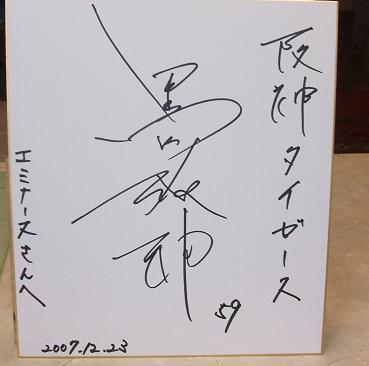 阪神タイガース
59
エミナースさんへ
2007.12.23